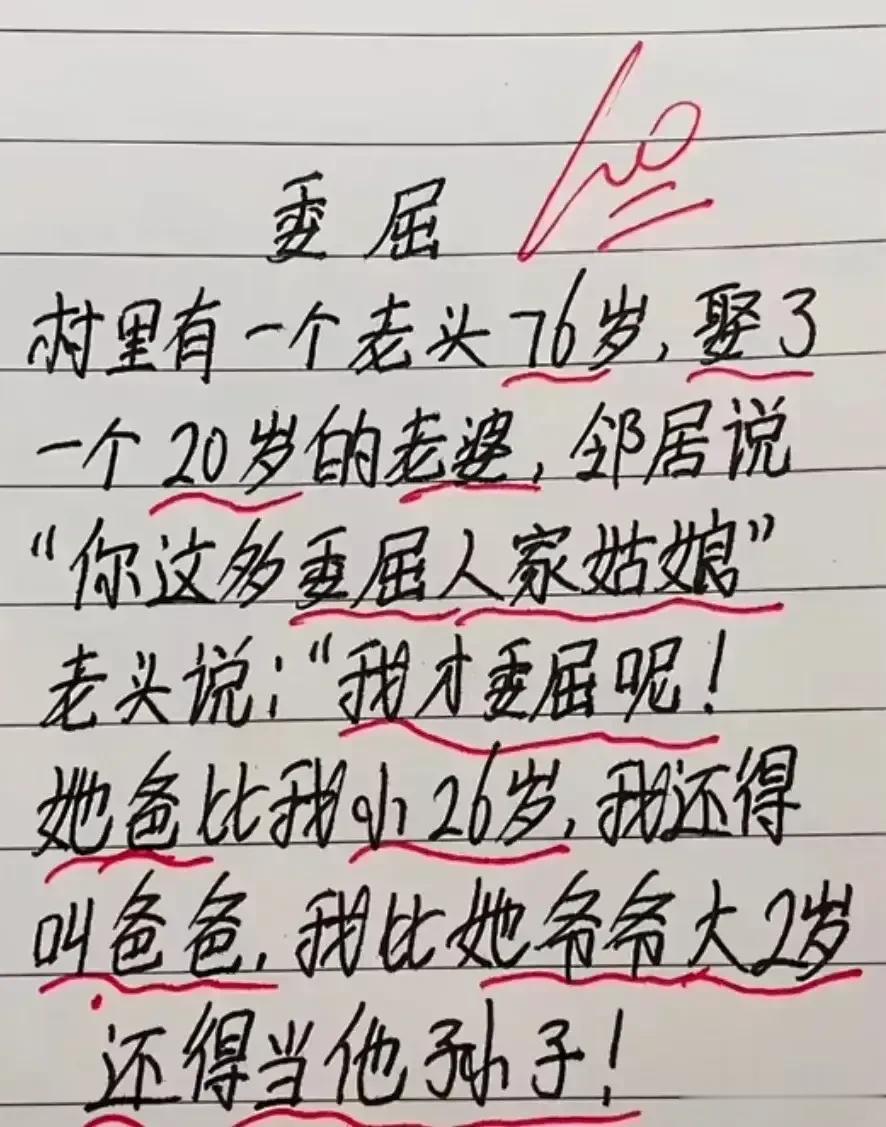 委屈
村里有一个老头76岁，娶了
一个20岁的老婆，邻居说
“你这多委屈人家姑娘”
老头说：“我才委屈呢！
她爸比我小26岁，我还得
叫爸爸，我比她爷爷大2岁
还得当他孙子！